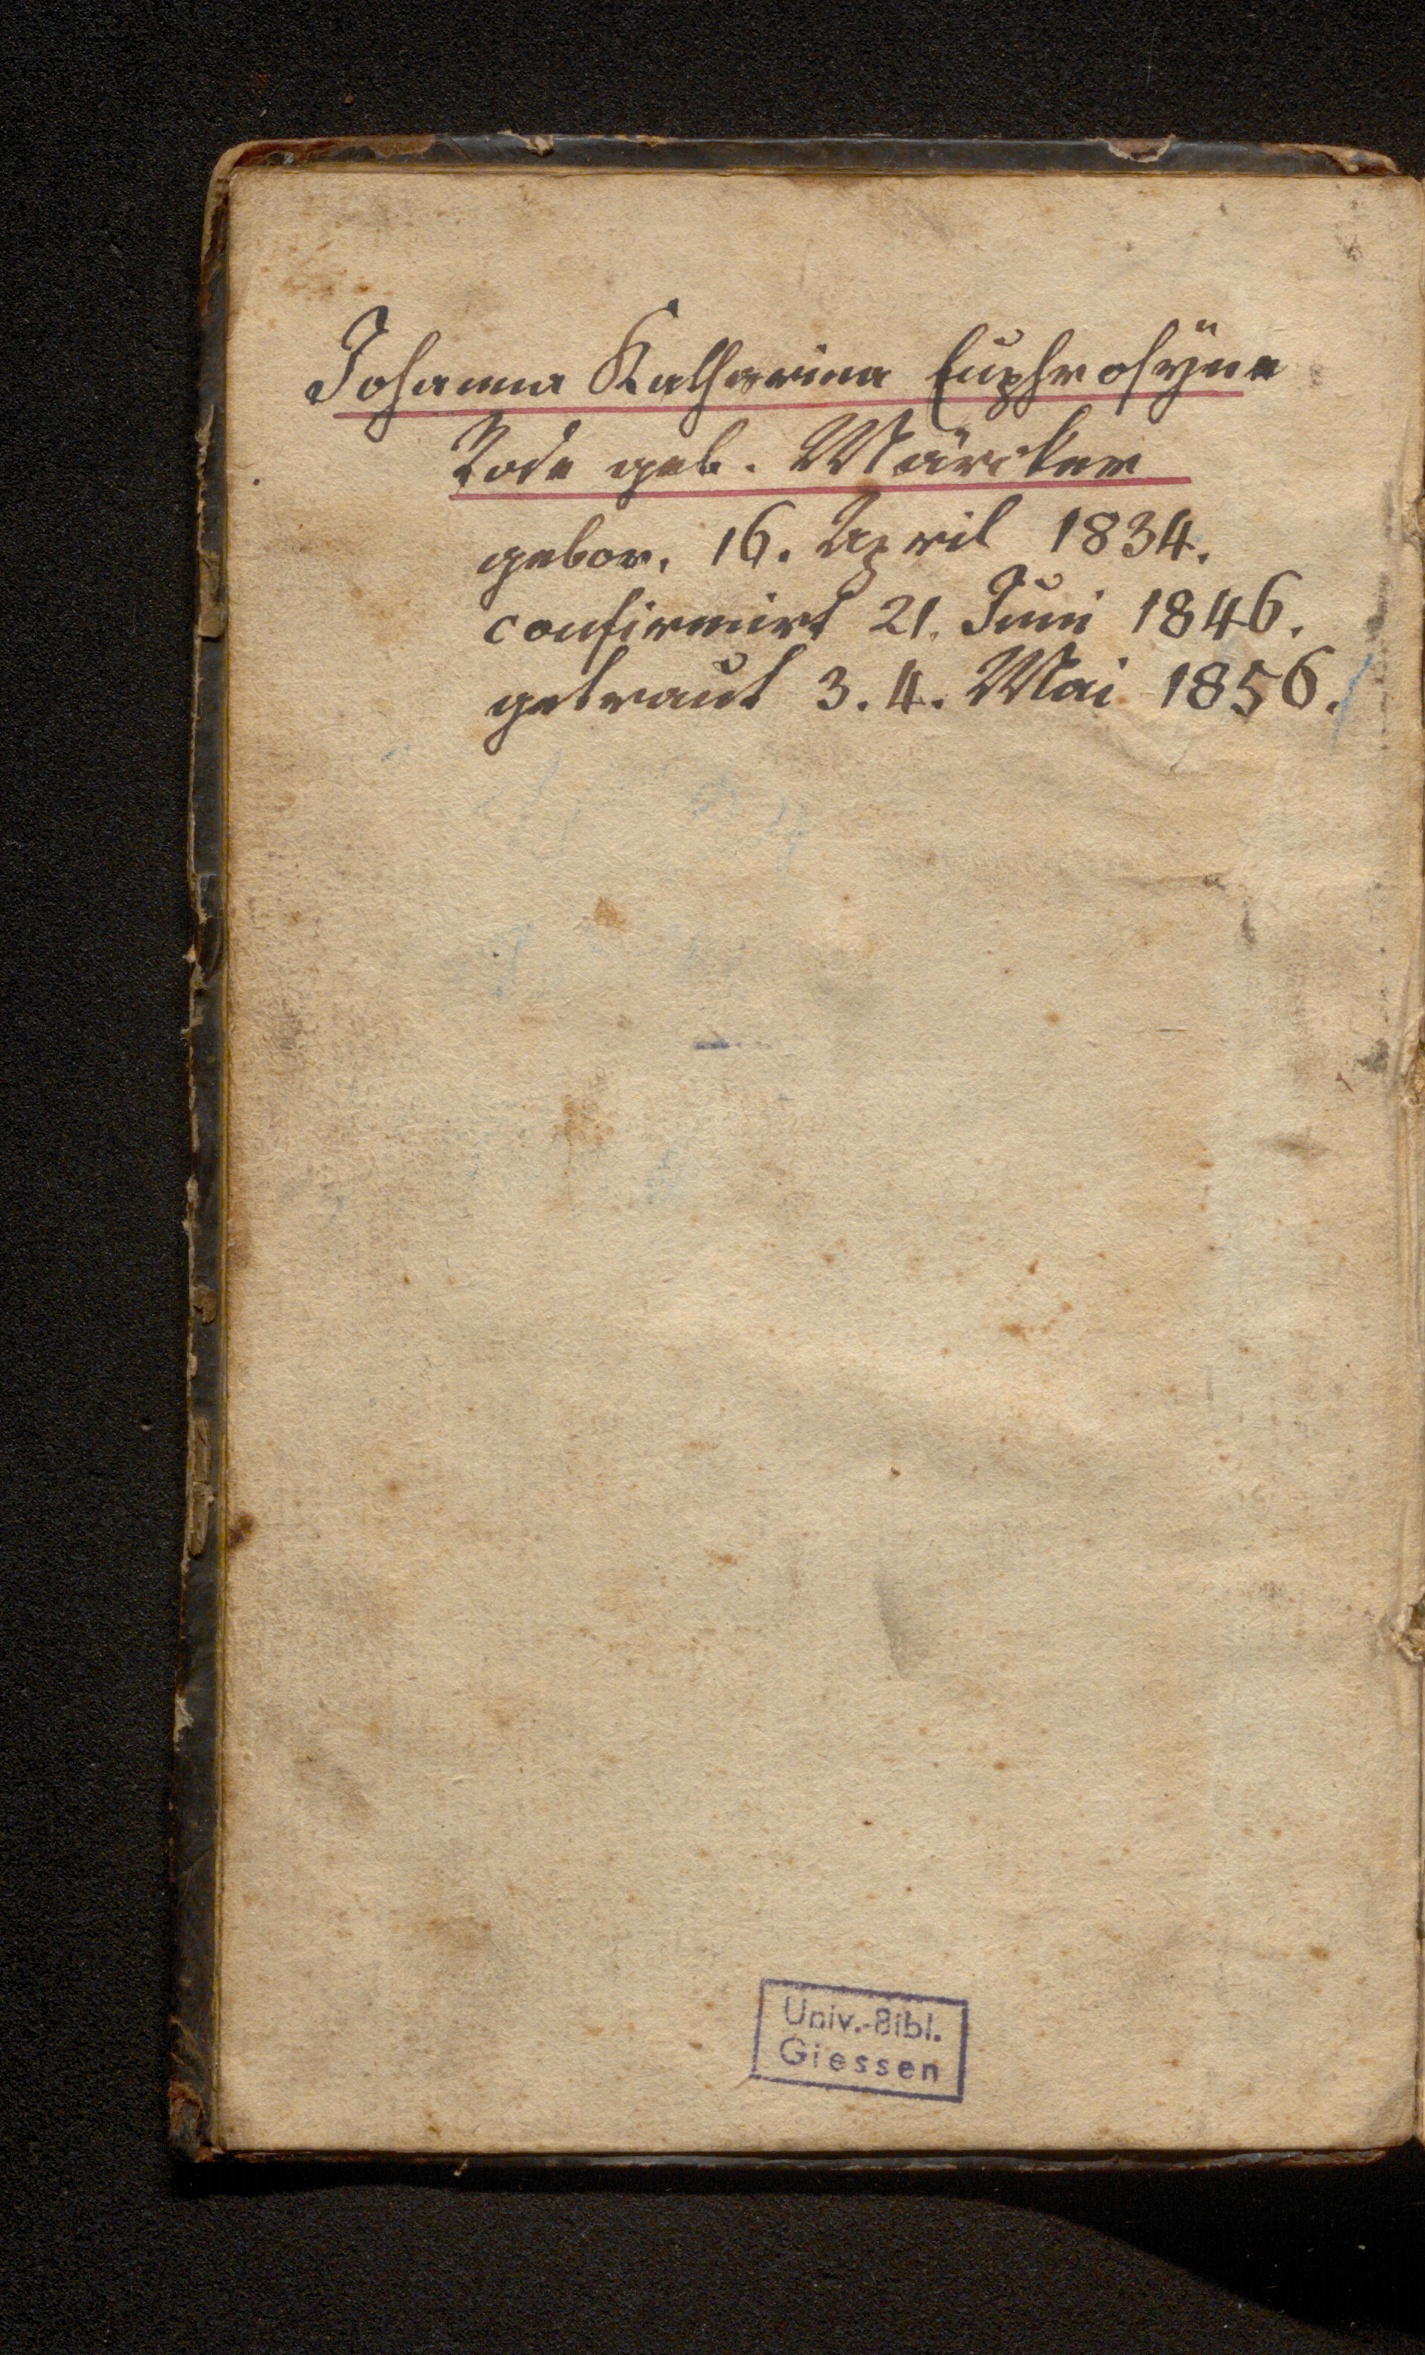 Johanna Katharina Euphrosÿne
Rode geb. Märcker
gebor. 16. April 1834.
confirmirt 21. Juni 1846.
getraut 3. 4. Mai 1856.
Univ.-Bibl.
Giessen